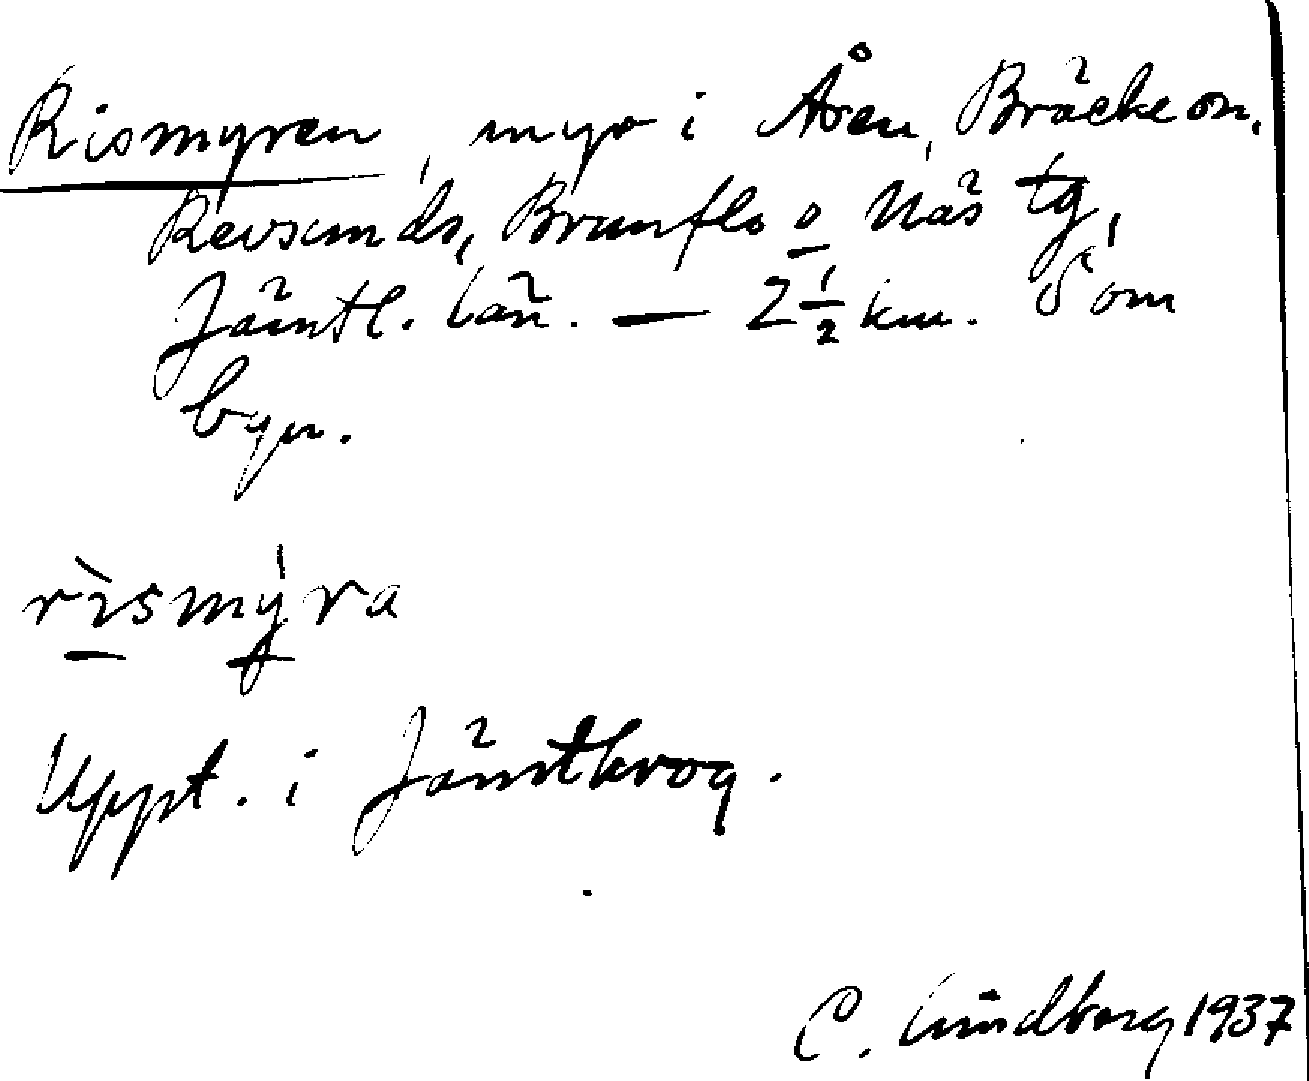 Rismyren, myr i Åsen, Bräcke sn,
Revsunds, Brunflo o Näs tg,
Jämtl. län. — 2 1/2 km. S om
byn.
rìsmýra
Uppt. i Jämtkrog.
C. Lindberg 1937